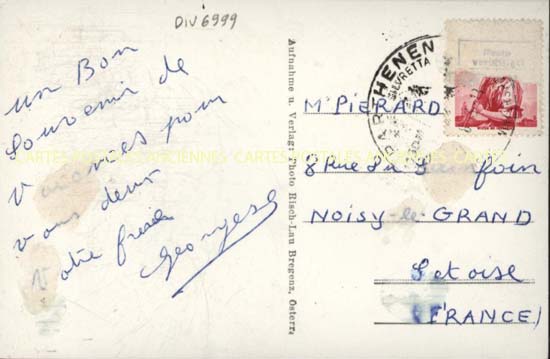 DIV 6999
un Bon
Souvenir de
Vacances pour
vous deux
Votre frère
Georges
Aufnahme u. Verlag: Photo Risch-Lau Bregenz, Österr.
PARTHENEN
SILVRETTA
Mr PIERARD
8 Rue du Sainfoin
NOISY-le-GRAND
S et oise
(FRANCE)
CARTES POSTALES ANCIENNES CARTES POSTALES ANCIENNES